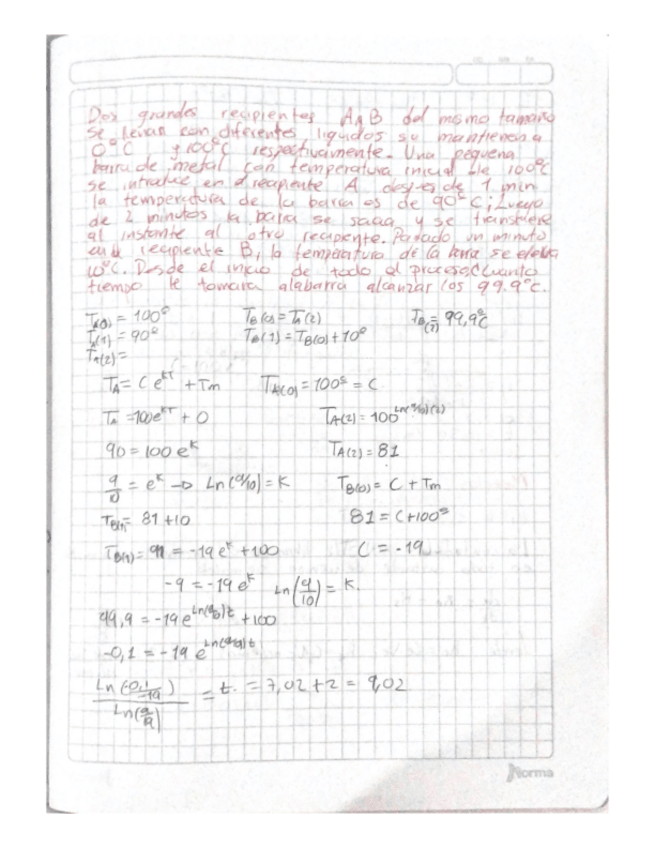 Dos grandes recipientes A y B del mismo tamaño
se llevan con diferentes liquidos se mantienen a
0°C y 100°C respectivamente. Una pequeña
barra de metal con temperatura inicial de 100°C
se introduce en el recipiente A despues de 1 min
la temperatura de la barra es de 90°C; Luego
de 2 minutos la barra se saca y se transfiere
al instante al otro recipiente. Pasado un minuto
en el recipiente B, la temperatura de la barra se eleva
10°C. Desde el inicio de todo el proceso ¿cuanto
tiempo le tomara a la barra alcanzar los 99.9°C.
T_A(0) = 100° T_B(0) = T_A(2) T_B(?) = 99,9°C
T_A(1) = 90° T_B(1) = T_B(0) + 10°
T_A(2) =
T_A = C e^kT + Tm T_A(0) = 100° = C
T_A = 100e^kT + 0 T_A(2) = 100^Ln(9/10)(2)
90 = 100 e^k T_A(2) = 81
9/10 = e^k → Ln(9/10) = K T_B(0) = C + Tm
T_B(1) = 81 + 10 81 = C + 100°
T_B(1) = 91 = -19 e^k + 100 C = -19
-9 = -19 e^k Ln(9/10) = K.
99,9 = -19 e^Ln(9/10)t + 100
-0,1 = -19 e^Ln(9/19)t
Ln(-0,1/-19) / Ln(9/19) = t. = 7,02 + 2 = 9,02
Norma